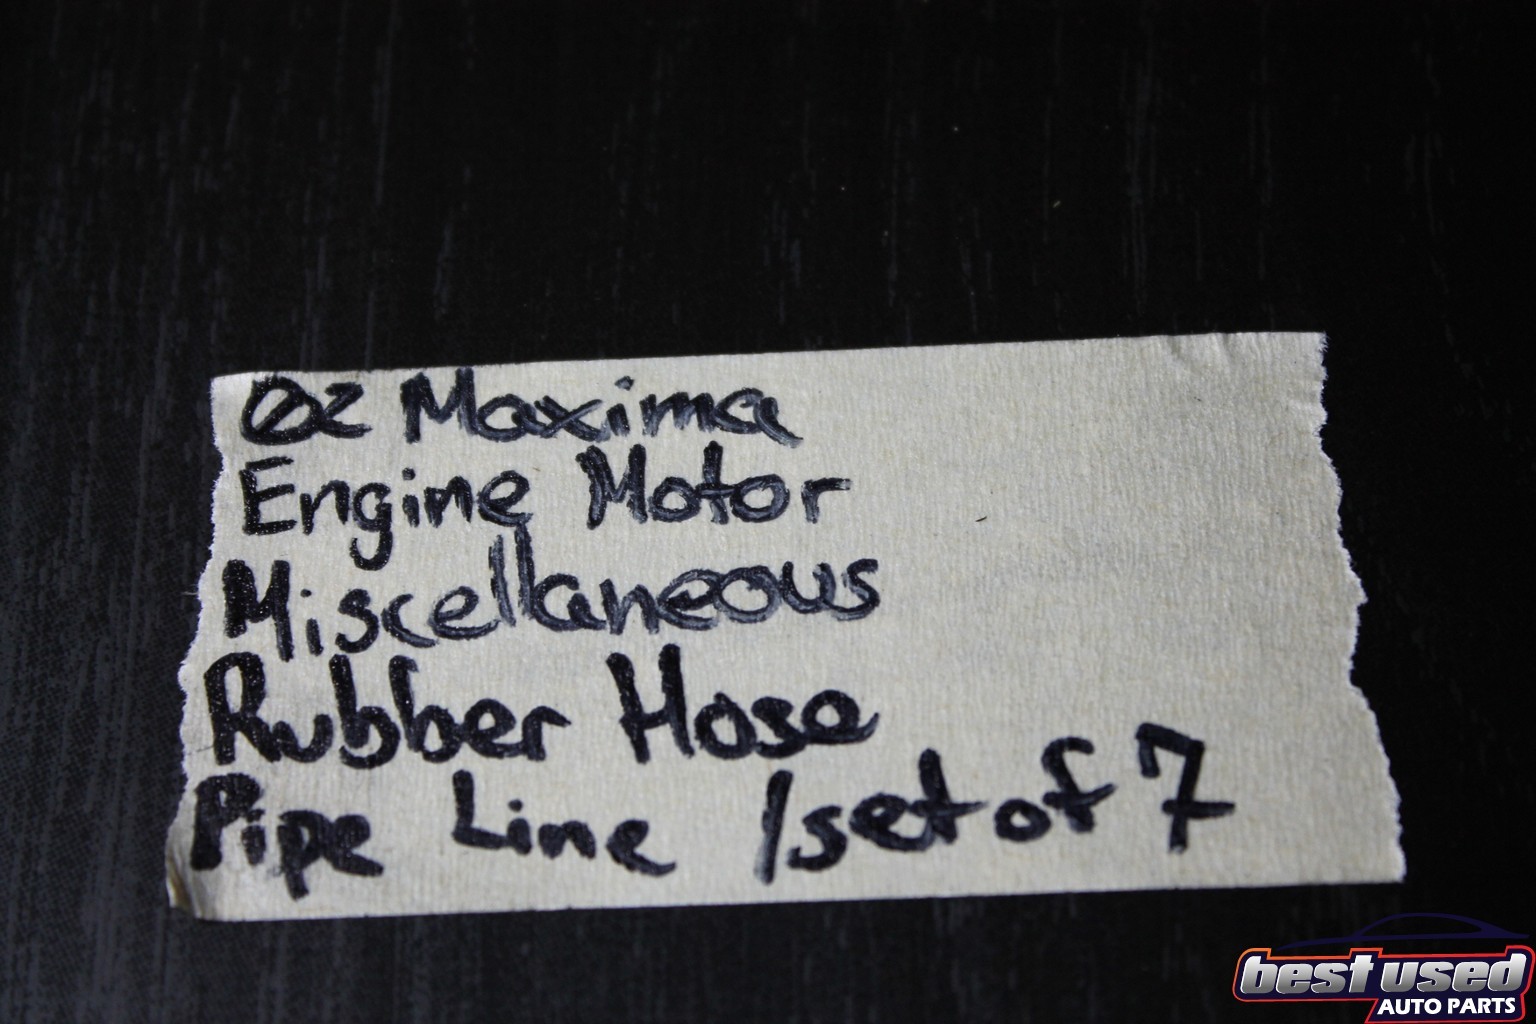 02 Maxima
Engine Motor
Miscellaneous
Rubber Hose
Pipe Line /set of 7
best used
AUTO PARTS